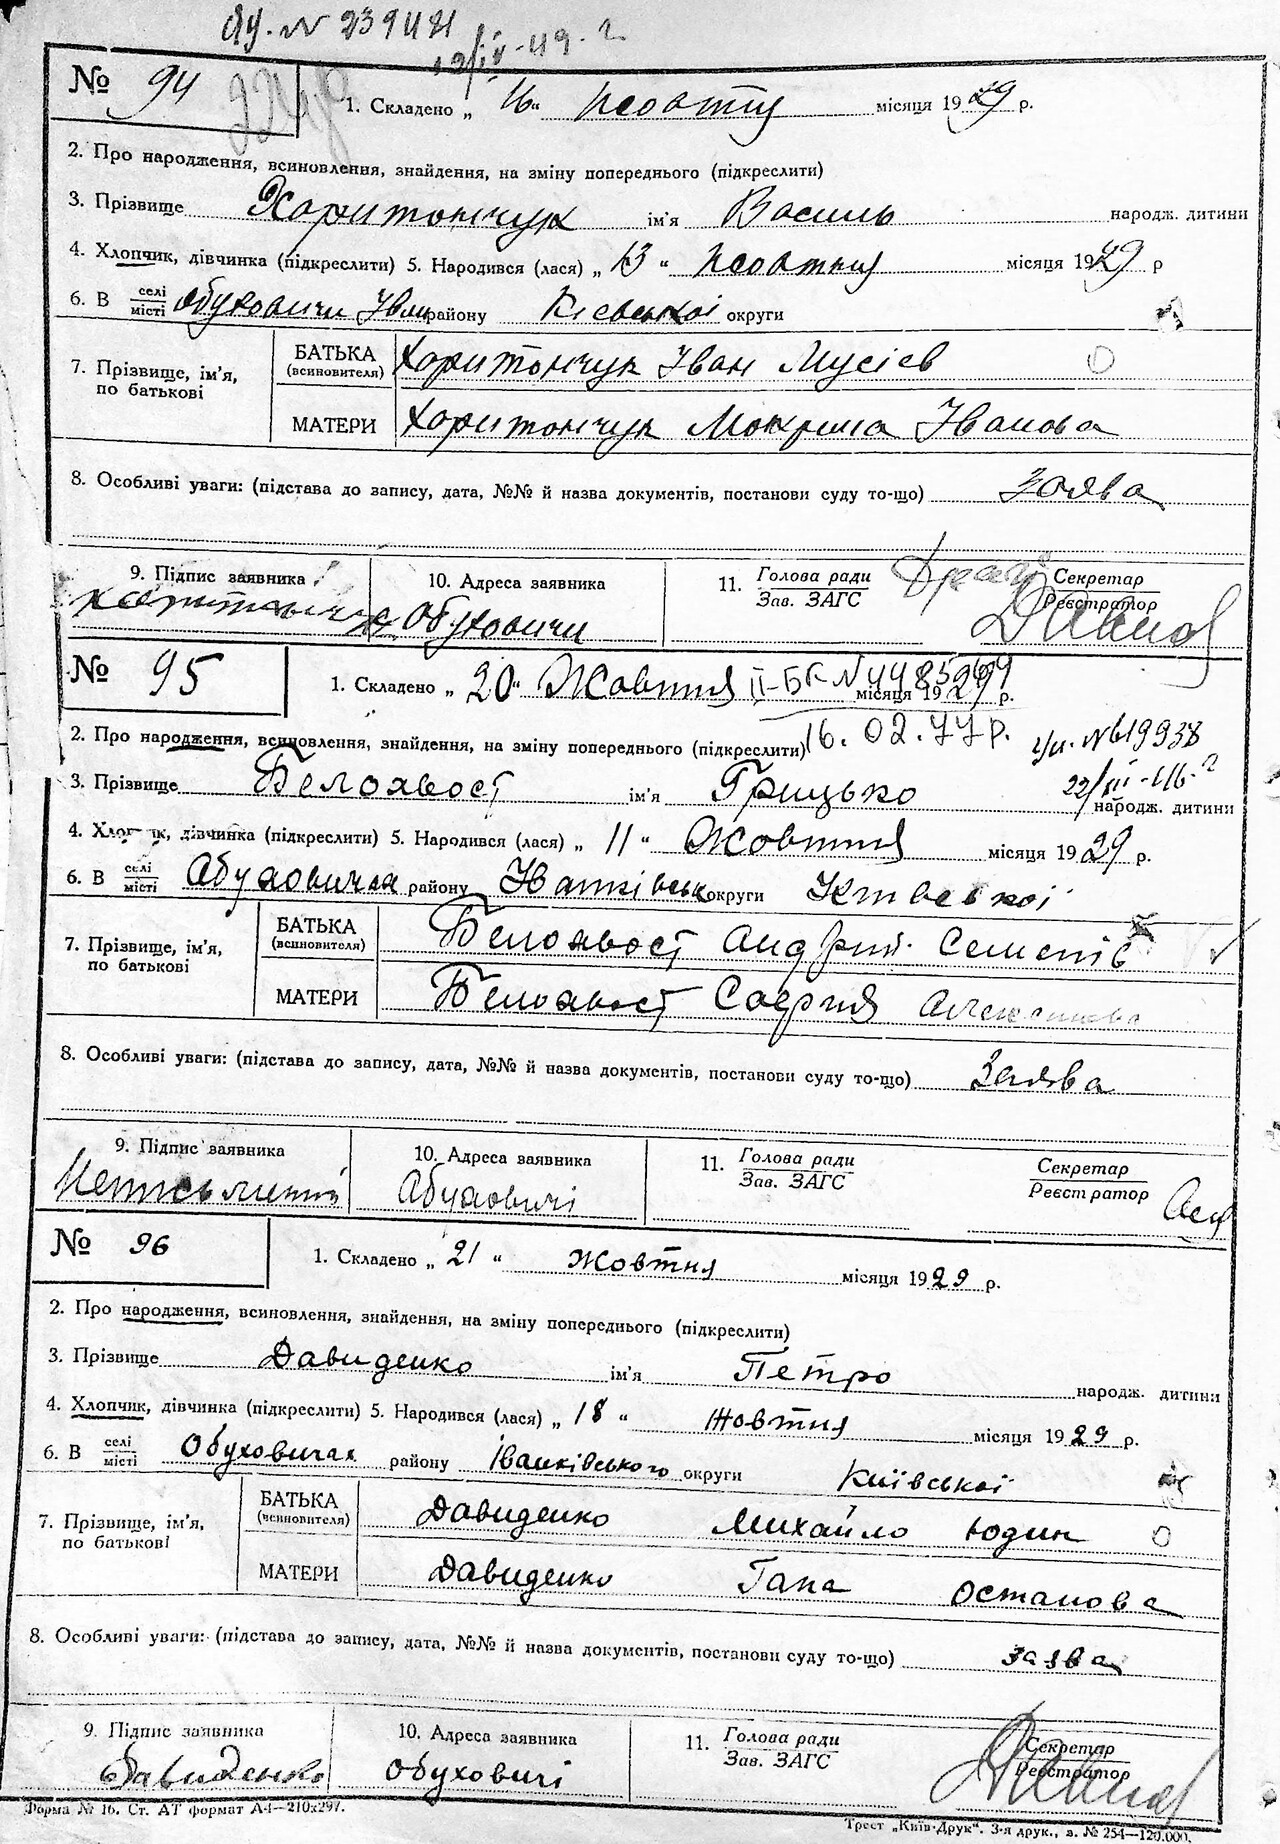 № 94
1. Складено „ 16 “ жовтня місяця 1929 р.
2. Про народження, всиновлення, знайдення, на зміну попереднього (підкреслити)
3. Прізвище Харитончук ім'я Василь народж. дитини
4. Хлопчик, дівчинка (підкреслити) 5. Народився (лася) „ 13 “ жовтня місяця 1929 р
6. В селі місті Обуховичи Іван району Кієвської округи
7. Прізвище, ім'я, по батькові
БАТЬКА (всиновителя) Харитончук Іван Мусієв
МАТЕРИ Харитончук Мокрина Іванова
8. Особливі уваги: (підстава до запису, дата, №№ й назва документів, постанови суду то-що) Заява
9. Підпис заявника 10. Адреса заявника 11. Голова ради Зав. ЗАГС Секретар Реєстратор
Харитончук Обуховичи
№ 95
1. Складено „ 20 “ Жовтня місяця 1929 р.
II-БК N
16.02.77 р.
2. Про народження, всиновлення, знайдення, на зміну попереднього (підкреслити)
3. Прізвище Белохвост ім'я Грицько народж. дитини
4. Хлопчик, дівчинка (підкреслити) 5. Народився (лася) „ 11 “ Жовтня місяця 1929 р.
6. В селі місті Абуховичах району Іванківськ округи
7. Прізвище, ім'я, по батькові
БАТЬКА (всиновителя) Белохвост Андрій Семенів
МАТЕРИ Белохвост София
8. Особливі уваги: (підстава до запису, дата, №№ й назва документів, постанови суду то-що) Заява
9. Підпис заявника 10. Адреса заявника 11. Голова ради Зав. ЗАГС Секретар Реєстратор
Абуховичі
№ 96
1. Складено „ 21 “ жовтня місяця 1929 р.
2. Про народження, всиновлення, знайдення, на зміну попереднього (підкреслити)
3. Прізвище Давиденко ім'я Петро народж. дитини
4. Хлопчик, дівчинка (підкреслити) 5. Народився (лася) „ 18 “ жовтня місяця 1929 р.
6. В селі місті Обуховичах району Іванківського округи Київської
7. Прізвище, ім'я, по батькові
БАТЬКА (всиновителя) Давиденко Михайло Юдин
МАТЕРИ Давиденко Гана Остапова
8. Особливі уваги: (підстава до запису, дата, №№ й назва документів, постанови суду то-що) заява
9. Підпис заявника 10. Адреса заявника 11. Голова ради Зав. ЗАГС Секретар Реєстратор
Давиденко Обуховичі
Форма № 16. Ст. АТ формат А4—210х297.
Трест „Київ-Друк“. 3-я друк., з. № 254—120.000.